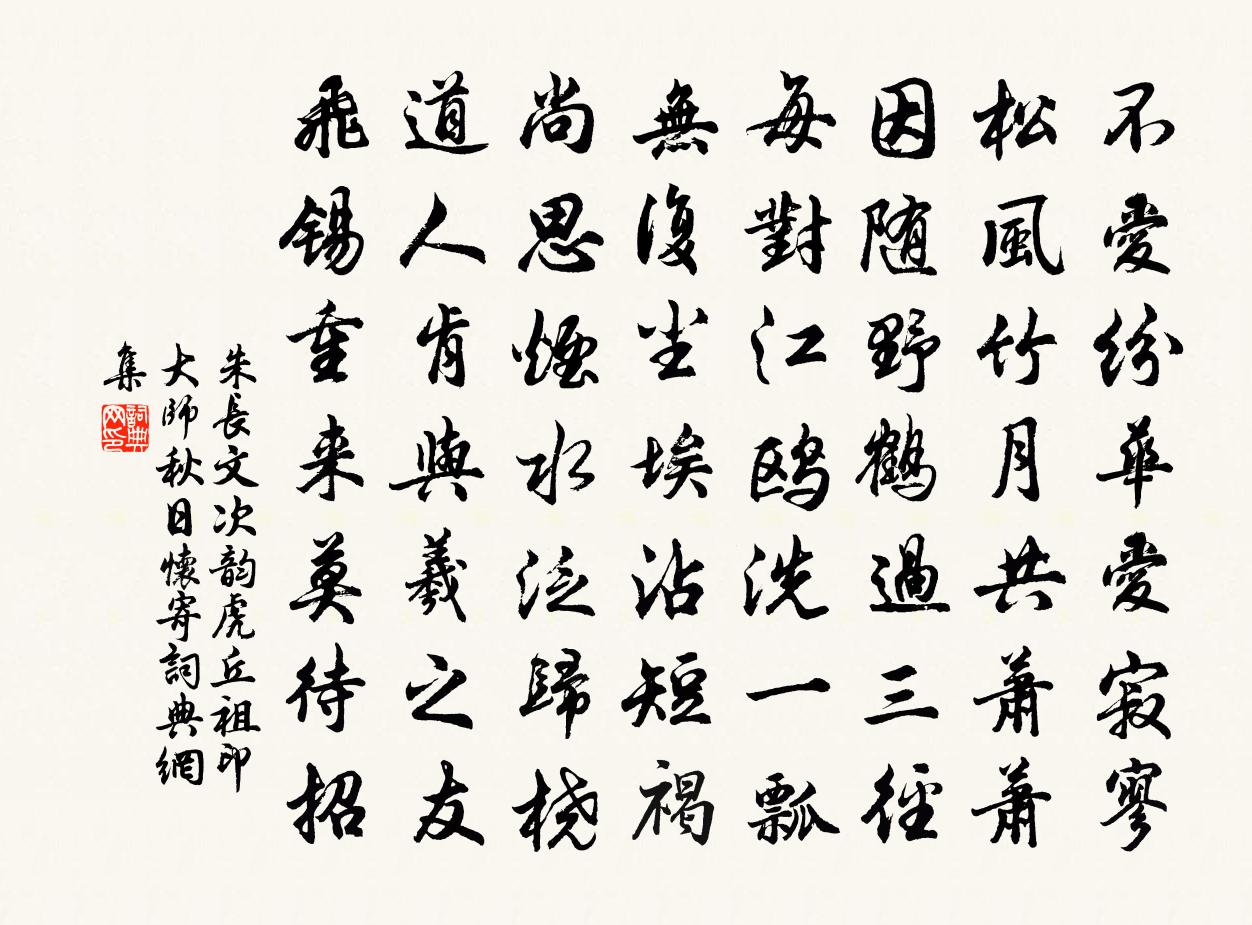 不愛紛華愛寂寥
松風竹月共蕭蕭
因随野鶴過三徑
每對江鸥洗一瓢
無復尘埃沾短褐
尚思煙水泛歸桡
道人肯與羲之友
飛錫重来莫待招
朱長文次韵虎丘祖印
大師秋日懷寄詞典網
集
詞典
网印